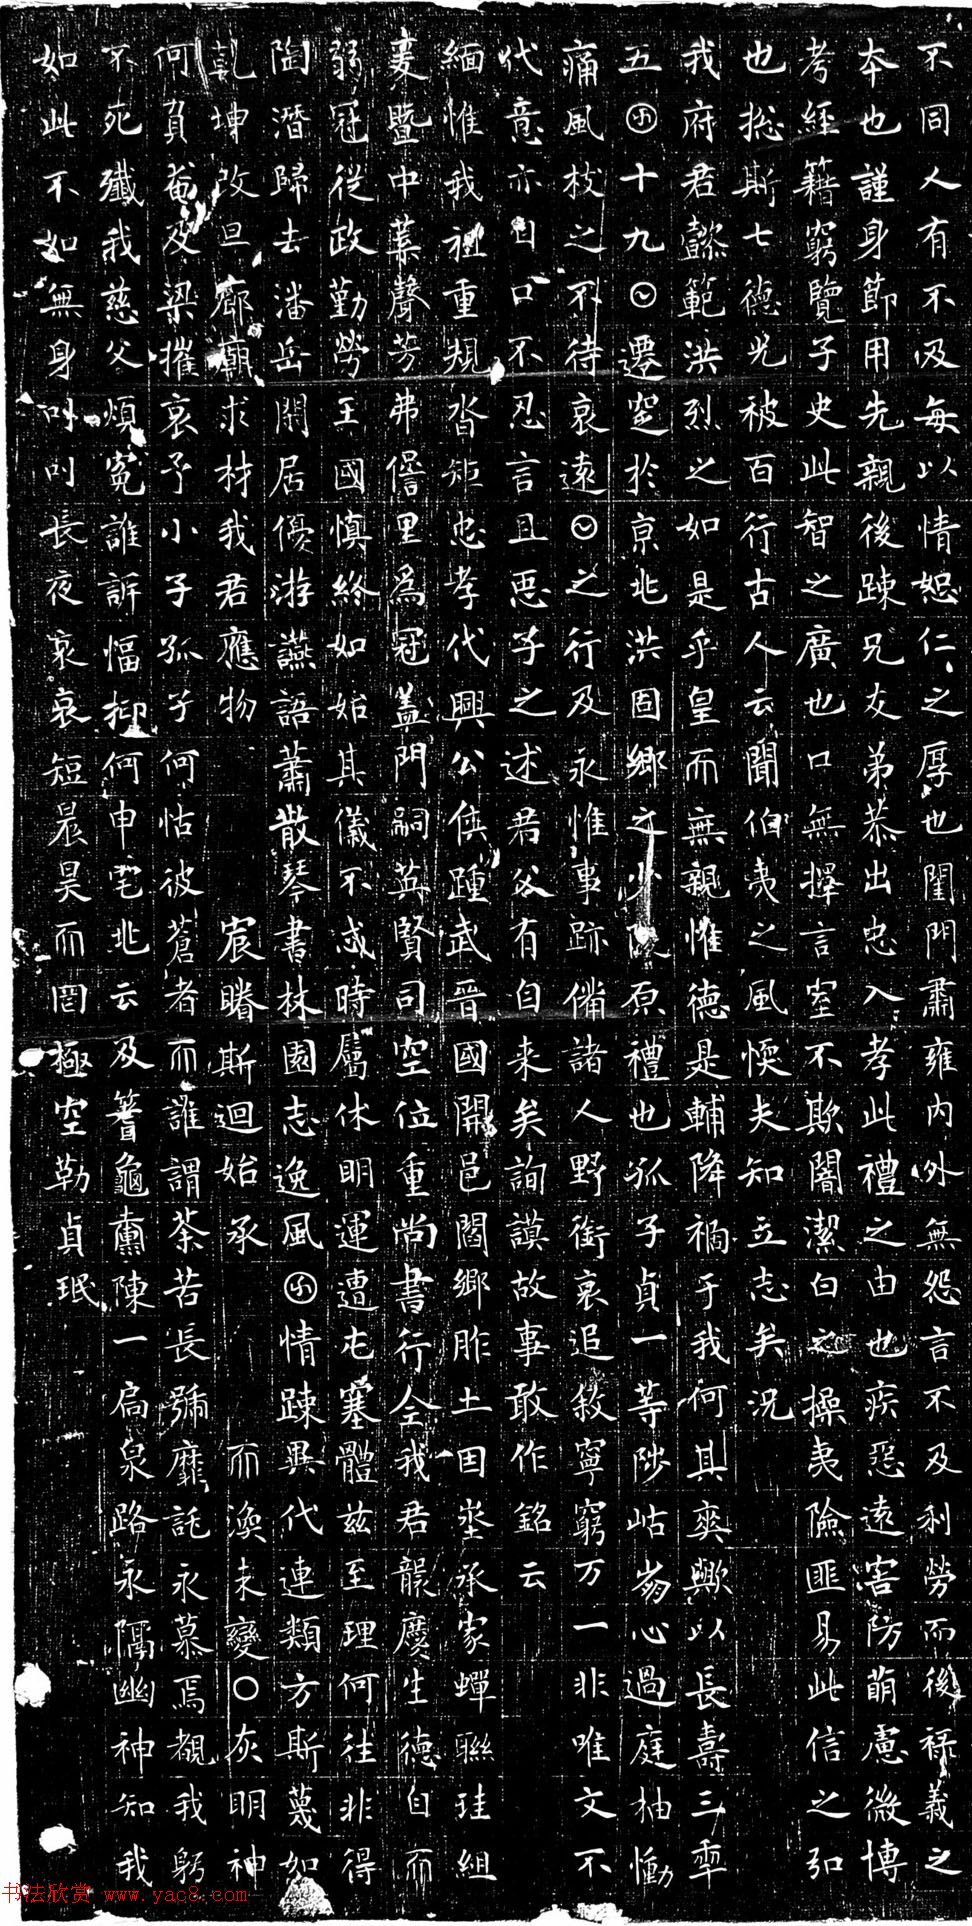 不同人有不及每以情恕仁之厚也閨門肅雍內外無怨言不及利勞而後祿義之
本也謹身節用先親後踈兄友弟恭出忠入孝此禮之由也疾惡遠害防萌慮微博
考經籍窮覽子史此智之廣也口無擇言室不欺闇潔白之操夷險匪易此信之弘
也揔斯七德光被百行古人云聞伯夷之風懦夫知立志矣況
我府君懿範洪烈之如是乎皇而無親惟德是輔降禍于我何其爽歟以長壽三𠡦
五囝十九〇遷窆於京兆洪固鄉之少陵原禮也孤子貞一等陟岵崩心過庭抽慟
痛風枝之不待哀遠〇之行及永惟事跡備諸人野銜哀追敘寧窮万一非唯文不
代意亦自口不忍言且惡子之述君父有自来矣詢謨故事敢作銘云
緬惟我祖重規沓矩忠孝代興公侯踵武晉國開邑閻鄉胙土因垂承家蟬聯珪組
爰暨中葉聲芳弗僭里爲冠盖門嗣英賢司空位重尚書行全我君龍慶生德自而
弱冠從政勤勞王國慎終如始其儀不忒時屬休明運遭屯蹇體茲至理何往非得
陶潛歸去潘岳閑居優游讌語蕭散琴書林園志逸風囝情踈異代連類方斯蔑如
乾坤改旦廊廟求材我君應物 宸睠斯迴始承 而渙未變〇灰明神
何負奄及梁摧哀予小子孤子何怙彼蒼者而誰謂荼苦長號靡訴永慕焉覩我躬
不死殲我慈父煩冤誰訴愊抑何申宅兆云及蓍龜薦陳一扃泉路永隔幽神知我
如此不如無身叫叫長夜哀哀短晨昊而罔極空勒貞珉
书法欣赏 www.yac8.com